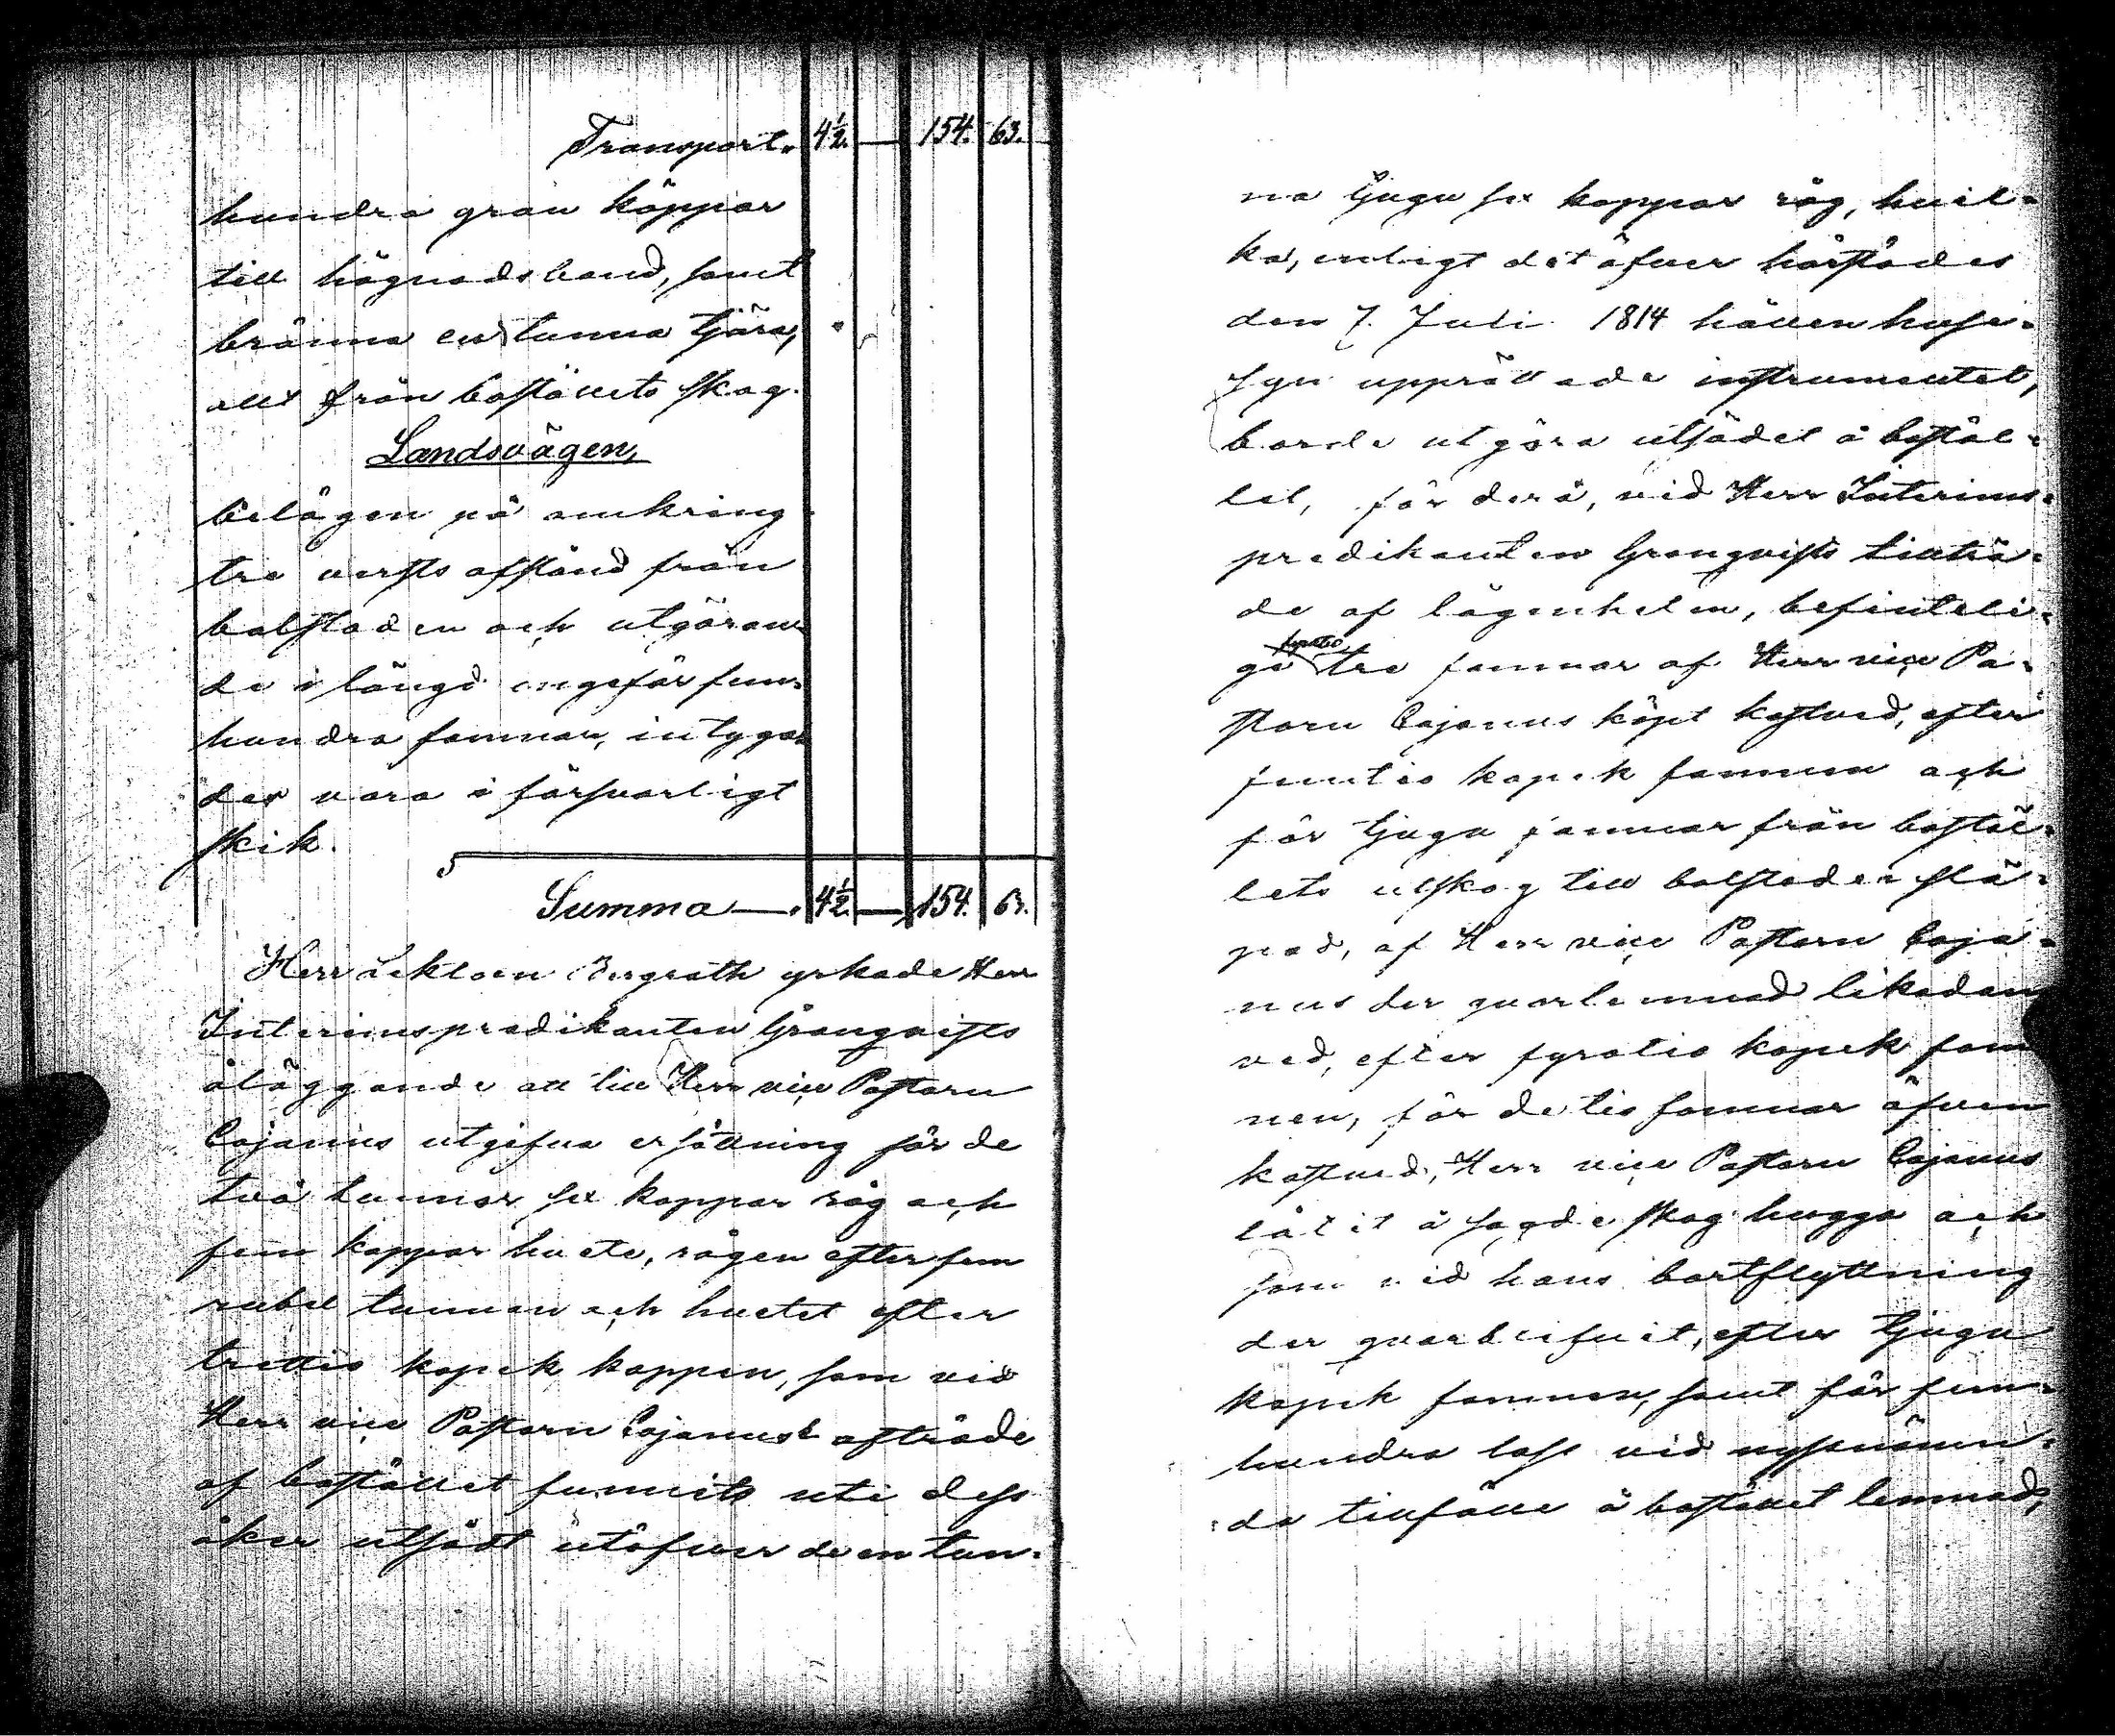 Transport. 4½. — 154. 63.
hundra gran käppar
till hägnadsband, samt
bränna en tunna tjära,
allt från boställets skog.
Landsvägen,
belägen på omkring
tre versts afstånd från
bolstaden och utgöran-
de i längd ungefär fem-
hundra famnar, intyga-
des vara i försvarligt
skik.
Summa — 4½. — 154. 63.
Herr Lektorn Bergroth yrkade Herr
Interimspredikanten Granqvists
åläggande att till Herr vice Pastorn
Cajanus utgifva ersättning för de
två tunnor sex kappar råg och
fem kappar hvete, rågen efter fem
rubel tunnan och hvetet efter
trettio kopek kappen, som vid
Herr vice Pastorn Cajanus afträde
af bostället funnits uti dess
åker utsådt utöfver de en tun-
na tjugu sex kappar råg, hvil-
ka, enligt det öfver härstädes
den 7. Juli 1814 hållen huse-
syn upprättade instrumentet,
borde utgöra utsädet å bostäl-
let, för derå, vid Herr Interims-
predikanten Granqvists tillträ-
de af lägenheten, befinteli-
ga tre famnar af Herr vice Pa-
storn Cajanus köpt kastved, efter
femtio kopek famnen och
för tjugu famnar från bostäl-
lets utskog till bolstaden slä-
pad, af Herr vice Pastorn Caja-
nus der qvarlemnad likadan
ved, efter fyratio kopek fam
nen, för detio famnar äfven
kastved, Herr vice Pastorn Cajanus
låtit å sagde skog hugga och
som vid hans bortflyttning
der qvarblifvit, efter tjugu
kopek famnen, samt för fem-
hundra lass vid nyssnämn-
da tillfälle å bostället lemnad,